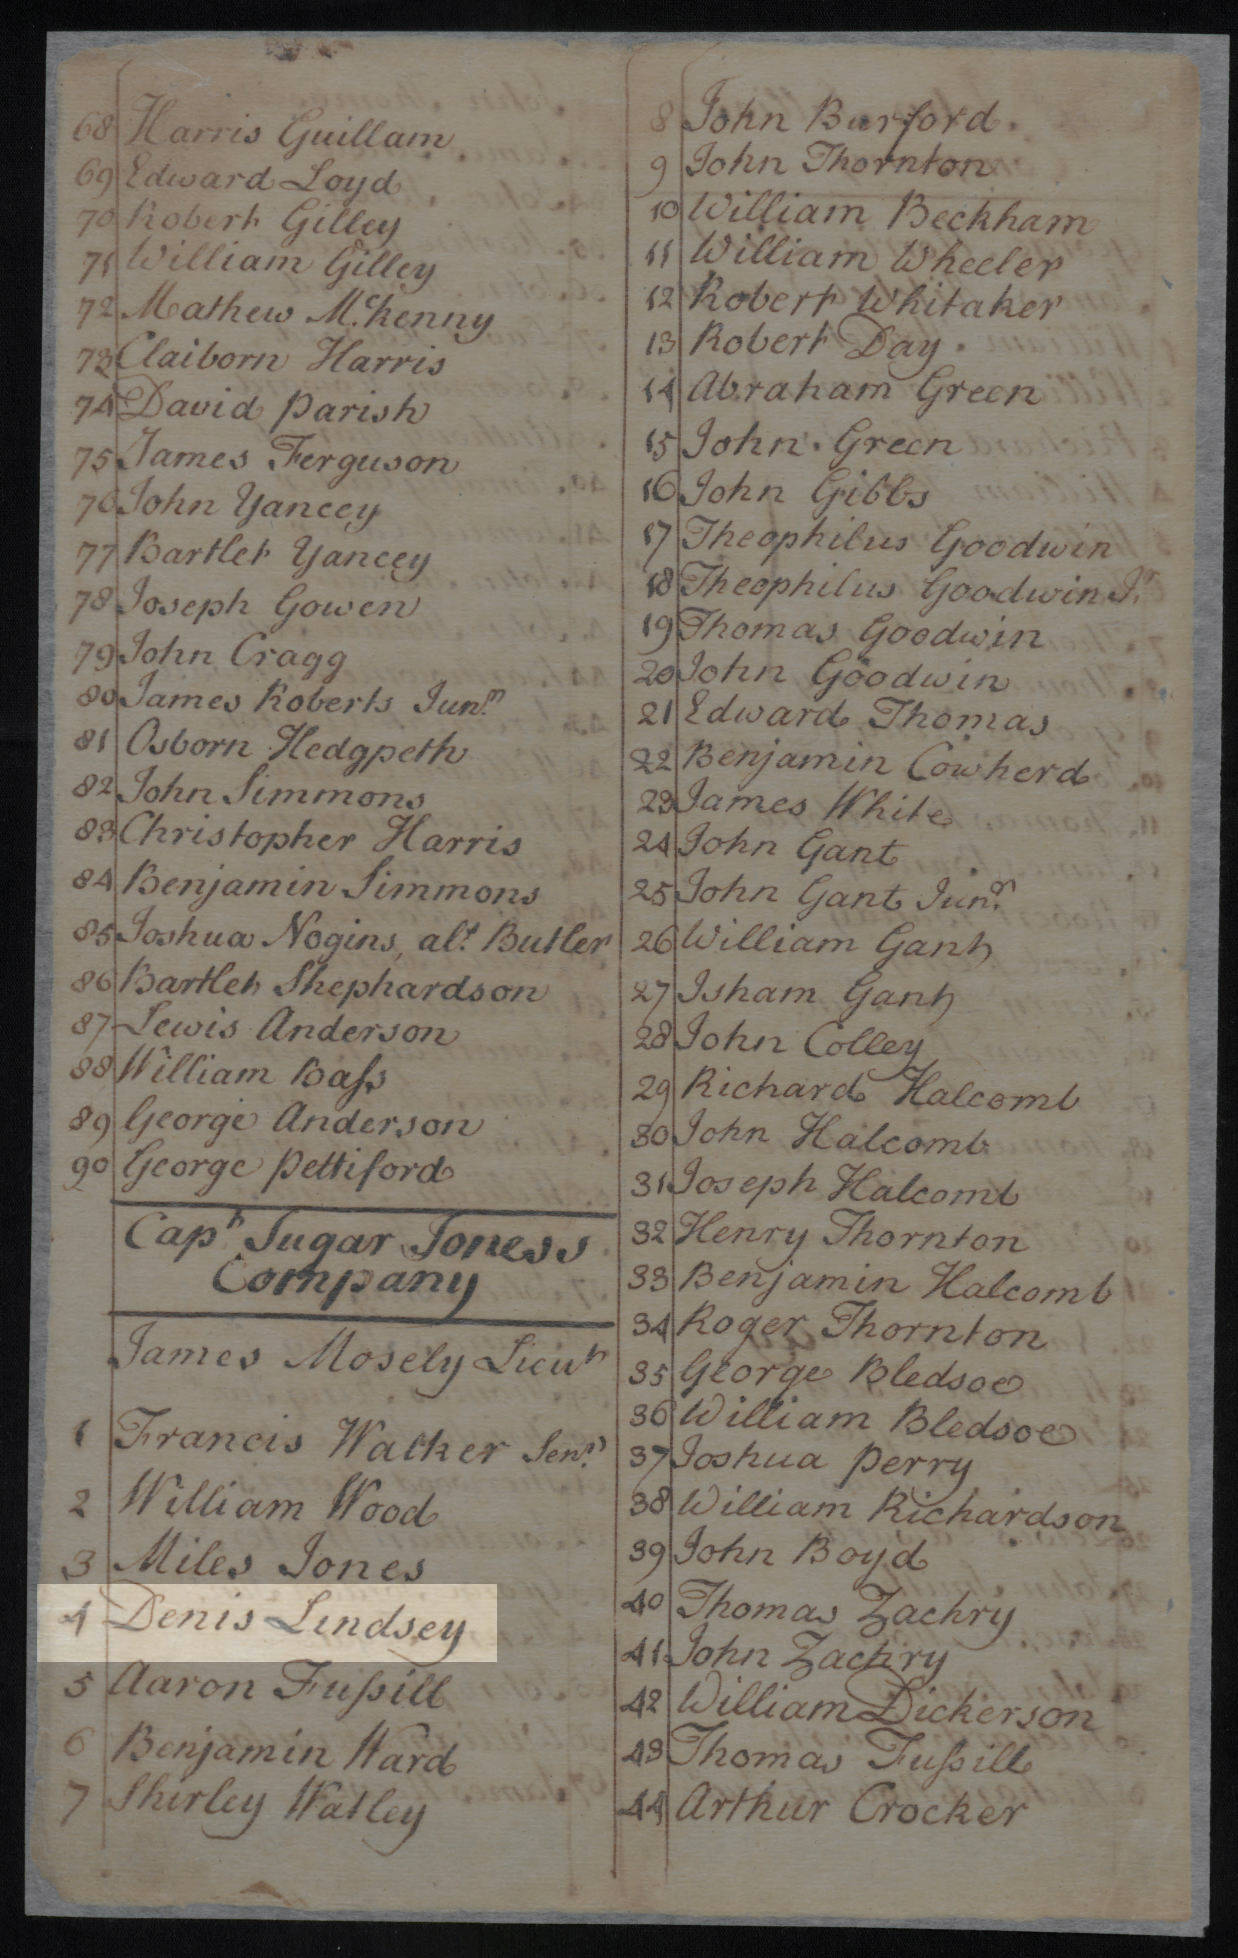 68 Harris Guillam
69 Edward Loyd
70 Robert Gilley
71 William Gilley
72 Mathew Mc.kenny
73 Claiborn Harris
74 David Parish
75 James Ferguson
76 John Yancey
77 Bartlet Yancey
78 Joseph Gowen
79 John Cragg
80 James Roberts Junr.
81 Osborn Hedgpeth
82 John Simmons
83 Christopher Harris
84 Benjamin Simmons
85 Joshua Nogins, als. Butler
86 Bartlet Shephardson
87 Lewis Anderson
88 William Bass
89 George Anderson
90 George Pettiford
Capt. Sugar Joness
Company
James Mosely Lieut
1 Francis Walker Senr.
2 William Wood
3 Miles Jones
4 Denis Lindsey
5 Aaron Fussill
6 Benjamin Ward
7 Shirley Watley
8 John Burford.
9 John Thornton
10 William Beckham
11 William Wheeler
12 Robert Whitaker
13 Robert Day.
14 Abraham Green
15 John. Green
16 John Gibbs
17 Theophilus Goodwin
18 Theophilus Goodwin Jr.
19 Thomas Goodwin
20 John Goodwin
21 Edward Thomas
22 Benjamin Cowherd
23 James White
24 John Gant
25 John Gant Junr.
26 William Gant
27 Isham Gant
28 John Colley
29 Richard Halcomb
30 John Halcomb
31 Joseph Halcomb
32 Henry Thornton
33 Benjamin Halcomb
34 Roger Thornton
35 George Bledsoe
36 William Bledsoe
37 Joshua Perry
38 William Richardson
39 John Boyd
40 Thomas Zachry
41 John Zachry
42 William Dickerson
43 Thomas Fussill
44 Arthur Crocker